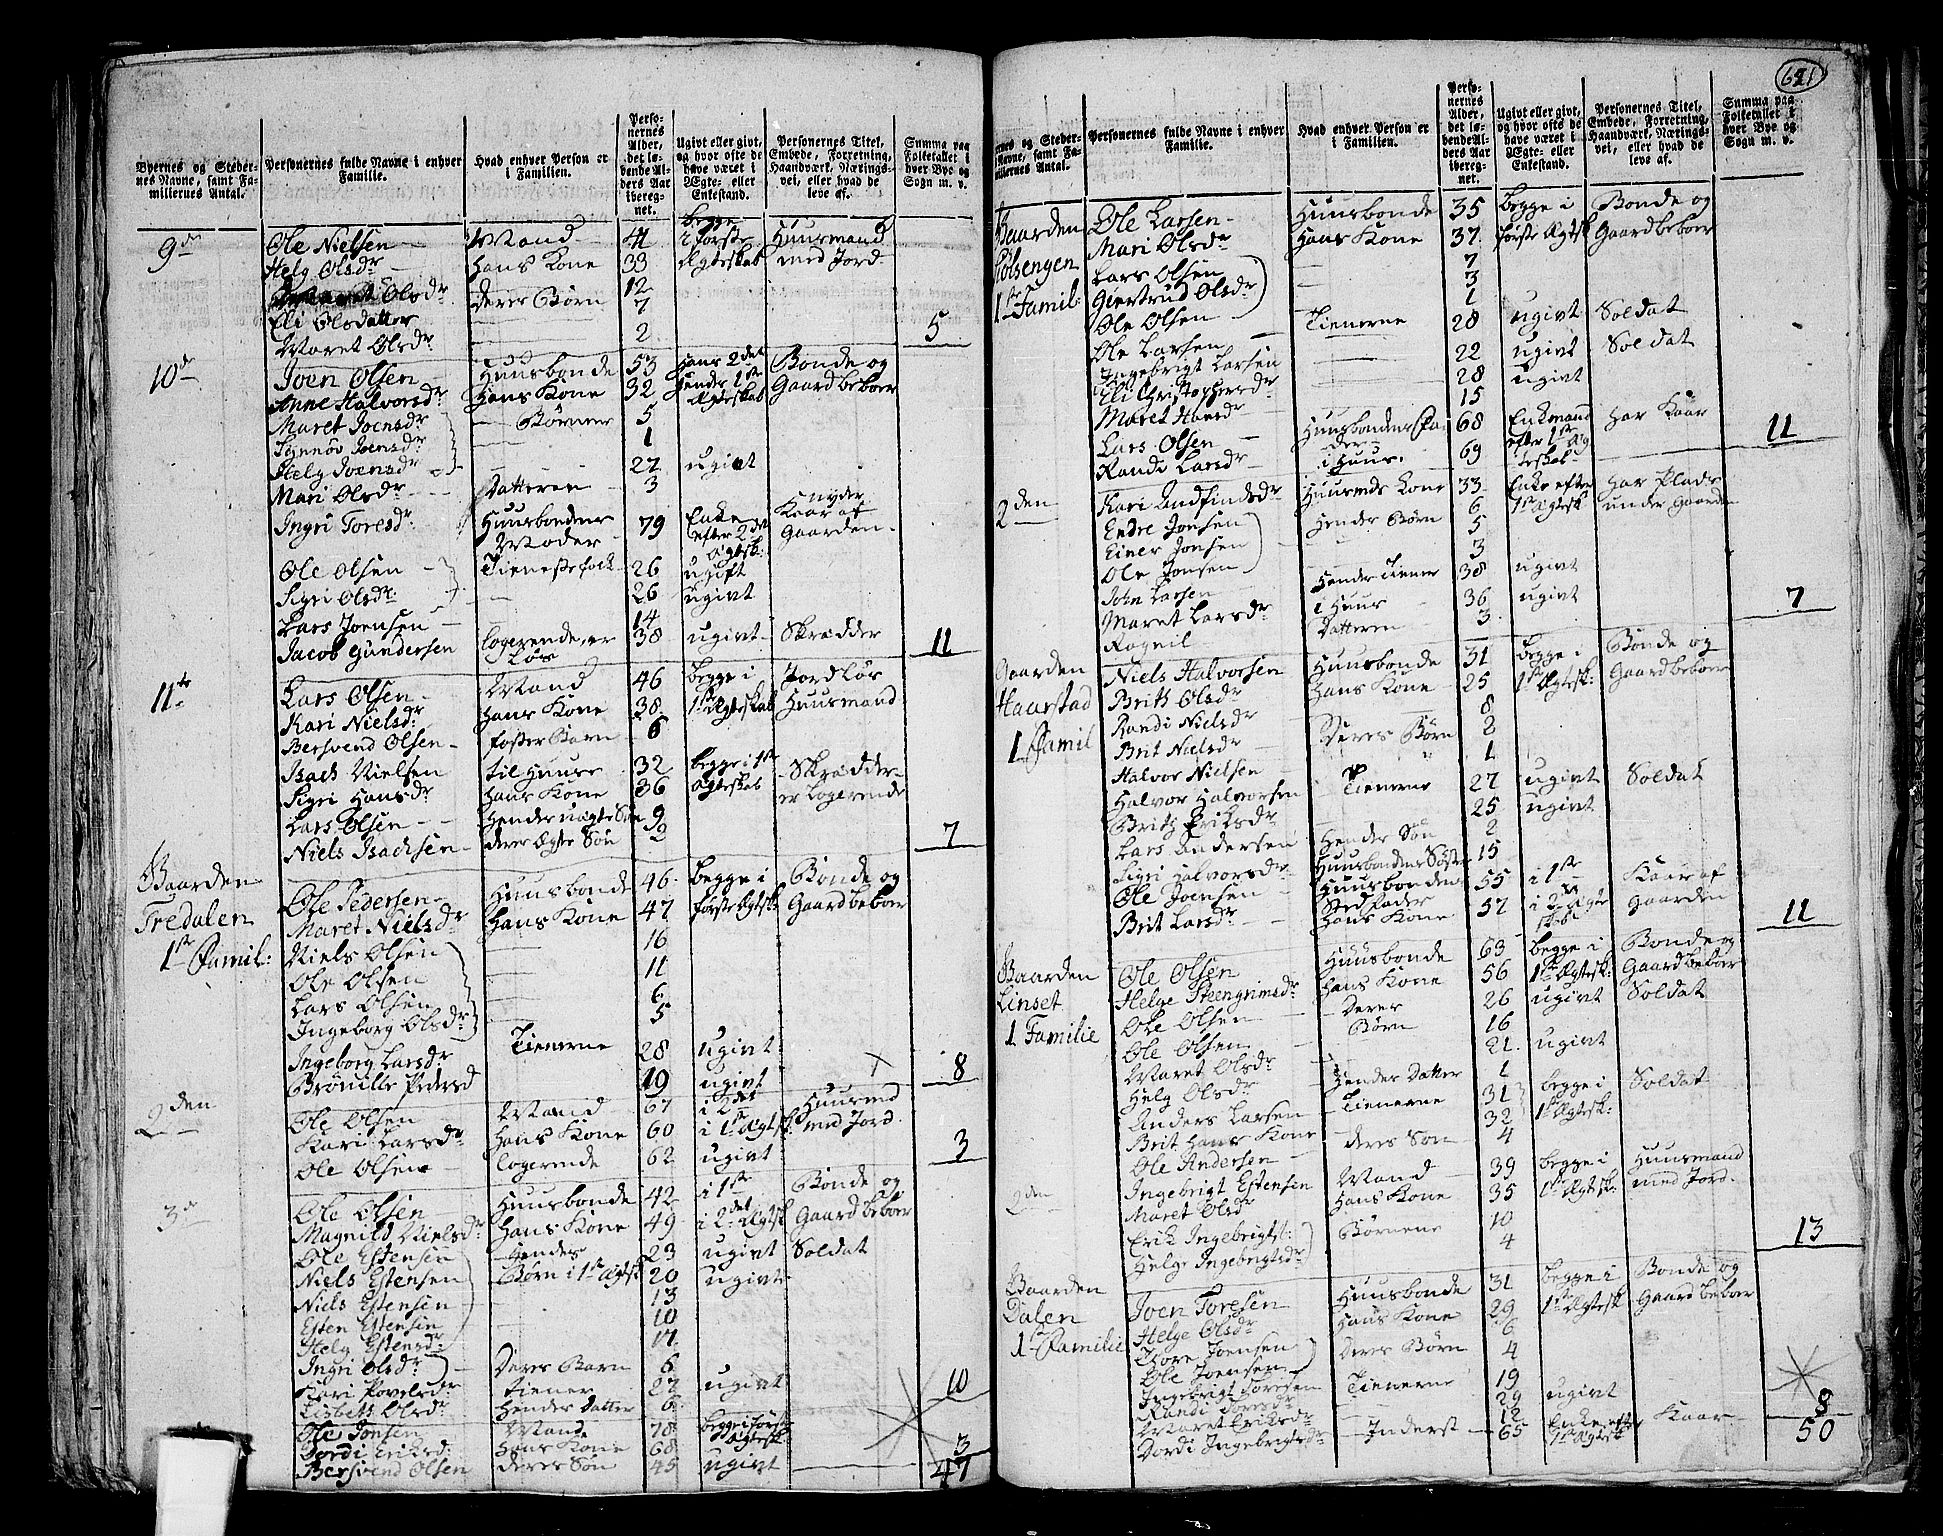 Byernes og Stedernes Navne, samt Familiernes Antal. | Personernes fulde Navne i enhver Familie. | Hvad enhver Person er i Familien. | Personernes Alder, det løbende Alders Aar iberegnet. | Ugivt eller givt, og hvor ofte de have været i Ægte- eller Enkestand. | Personernes Titel, Embede, Forretning, Haandværk, Næringsvei, eller hvad de leve af. | Summa paa Folketallet i hver Bye og Sogn m. v.
9de Ole Nielsen Mand 41 begge i første Huusmand
Helg Olsdr Hans Kone 33 Ægteskab med Jord
Maret Olsdr Deres Børn 12
Eli Olsdatter 7
Maret Olsdr 2 5
10de Joen Olsen Huusbonde 53 Hans 2det Bonde og
Anne Halvorsdr Hans Kone 32 Hendes 1ste Ægteskab Gaardbeboer
Maret Joensdr Børnene 5
Synnøv Joensdr 1
Helg Joensdr 27 ugivt
Mari Olsdr Datteren 3
Ingri Toresdr Huusbondens Moder 79 Enke efter 2det Ægtsk: nyder Kaar af Gaarden
Ole Olsen Tienestefolk 26 ugift
Sigri Olsdr 26 ugivt
Lars Joensen 14
Jacob Gundersen logerende, er løs 38 ugivt Skrædder 11
11te Lars Olsen Mand 46 begge i Jordløs
Kari Nielsdr Hans Kone 38 1ste Ægteskab Huusmand
Bersvend Olsen foster Barn 6
Isach Nielsen til Huuse 32 begge i 1ste Skrædder
Sigri Hansdr Hans Kone 36 Ægteskab er logerende
Lars Olsen Hendes uægte Søn 9
Niels Isachsen deres Ægte Søn 2 7
Gaarden Tredalen
1ste Famil: Ole Pedersen Huusbonde 46 begge i Bonde og
Maret Nielsdr Hans Kone 47 første Ægtsk: Gaardbeboer
Niels Olsen 16
Ole Olsen 11
Lars Olsen 6
Ingeborg Olsdr 5
Ingeborg Larsdr Tienerne 28 ugivt
Brønille Pedersd 19 ugivt 8
2den Ole Olsen Mand 67 i 2det Huusmd
Kari Larsdr Hans Kone 60 i 1ste Ægtsk: med Jord
Ole Olsen logerende 62 ugivt 3
3de Ole Olsen Huusbonde 42 i 1ste Bonde og
Magnild Nielsdr Hans Kone 49 i 2det Ægtsk Gaardbeboer
Ole Estensen Hendes 23 ugivt Soldat
Niels Estensen Børn i 1ste Ægtsk 20 ugivt
Niels Estensen 13
Esten Estensen 10
Helg Estensdr 17
Ingri Olsdr Deres Barn 6
Kari Povelsdr tiener 27 ugivt
Lisbeth Olsdr Hendes Datter 6 10
Ole Jonsen Mand 78 begge i første
Jordi Eriksd: Hans Kone 68 Ægtesk:
Bersvend Olsen deres Søn 45 ugivt 3
47
621
Byernes og Stedernes Navne, samt Familiernes Antal. | Personernes fulde Navne i enhver Familie. | Hvad enhver Person er i Familien. | Personernes Alder, det løbende Alders Aar iberegnet. | Ugivt eller givt, og hvor ofte de have været i Ægte- eller Enkestand. | Personernes Titel, Embede, Forretning, Haandværk, Næringsvei, eller hvad de leve af. | Summa paa Folketallet i hver Bye og Sogn m. v.
Gaarden Ole Larsen Huusbonde 35 begge i Bonde og
Mari Olsdr Hans Kone 37 første Ægtsk Gaardbeboer
Lars Olsen 7
1ste Famil: Giertrud Olsdr 3
Ole Olsen 1
Ole Larsen Tienerne 28 ugivt Soldat
Ingebrigt Larsen 22 ugivt Soldat
Eli Christophersdr 28 ugivt
Maret Hansdr 15
Lars Olsen Huusbondens Fader 68 Enkemand efter 1ste Ægteskab har Kaar
Randi Larsdr i Huus 69 11
2den Kari Endfindsdr Huusmds Kone 33 Enke efter har Plads
Endre Jonsen Hendes Børn 6 1ste Ægtesk under Gaarden
Einer Jonsen 5
Ole Jonsen 3
John Larsen Hendes Tiener 38 ugivt
Maret Larsdr i Huus 36 ugivt
Ragnil Datteren 3 7
Gaarden Haarstad
1 Famil Niels Halvorsen Huusbonde 31 begge i Bonde og
Brith Olsdr Hans Kone 25 1ste Ægtesk: Gaardbeboer
Randi Nielsdr 8
Brit Nielsdr Deres Børn 2
Halvor Nielsen 1
Halvor Halvorsen Tienerne 27 ugivt Soldat
Brith Eriksdr 25 ugivt
Lars Andersen Hendes Søn 2
Sigri Halvorsdr Huusbondens Søster 15
Ole Joensen Huusbondens Stedfader 55 i 1ste Kaar af
Brit Larsdr Hans Kone 57 i 2det Ægteskab Gaarden 11
Gaarden Linset
1 Familie Ole Olsen Huusbonde 63 begge i Bonde og
Helge Steengrimsdr Hans Kone 56 1ste Ægtesk: Gaardbeboer
Ole Olsen Deres Børn 26 ugivt Soldat
Ole Olsen 16
Maret Olsdr 21 ugivt
Helg Olsdr Hendes Datter 1
Anders Larsen Tienerne 31 begge i Soldat
Brit Hans Kone 32 1ste Ægtesk:
Ole Andersen deres Søn 4
2den Ingebrigt Estensen Mand 39 begge i Huusmand
Maret Olsdr Hans Kone 35 1ste Ægtsk: med Jord
Erik Ingebrigts: Børnene 10
Helge Ingebrigtsdr 4 13
Gaarden Dalen
1ste Familie Joen Toresen Huusbonde 31 begge i Bonde og
Helge Olsdr Hans Kone 29 1ste Ægtesk Gaardbeboer
Tore Joensen Deres Børn 6
Ole Joensen 4
Ingebrigt Toresen Tienerne 19
Randi Toresdr 29 ugivt
Maret Eriksdr 12
Jordi Ingebrigtsdr Inderst 65 Enke efter 1ste Ægtesk Kaar 8
50